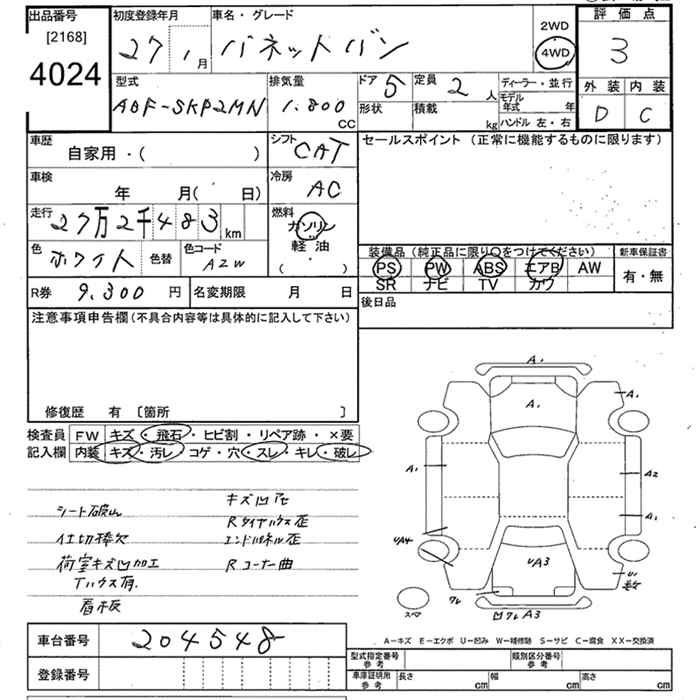 出品番号
[2168]
4024
初度登録年月
27年1月
車名・グレード
バネットバン
2WD
4WD
評価点
3
外装 内装
D C
型式
ABF-SKP2MN
排気量
1.800
CC
ドア 5
形状
定員 2 人
積載 kg
ディーラー・並行
モデル
年式 年
ハンドル 左・右
車歴
自家用・( )
シフト
CAT
セールスポイント (正常に機能するものに限ります)
車検
年 月( 日)
冷房
AC
走行
27万2千483 km
燃料
ガソリン
軽油
( ・ )
色
ホワイト
色替
色コード
A2W
装備品 (純正品に限り○をつけてください)
PS PW ABS エアB AW
SR ナビ TV カワ
新車保証書
有・無
R券 9.300 円
名変期限 月 日
後日品
注意事項申告欄(不具合内容等は具体的に記入して下さい)
修復歴 有 [箇所 ]
検査員 FW キズ・飛石・ヒビ割・リペア跡・×要
記入欄 内装 キズ・汚レ・コゲ・穴・スレ・キレ・破レ
シート破レ
仕切棒欠
荷室キズ凹加工
Tハウス有.
看板
キズ凹在
Rタイヤハウス歪
エンドパネル歪
Rコーナー曲
A1
A1
A1
A1
A2
A1
UA4
UA3
U1
ワレ
凹ワレA3
スペア
A-キズ E-エクボ U-凹み W-補修跡 S-サビ C-腐食 XX-交換済
車台番号 204548
登録番号
型式指定番号
参考
類別区分番号
参考
車庫証明用
参考
長さ cm 幅 cm 高さ cm